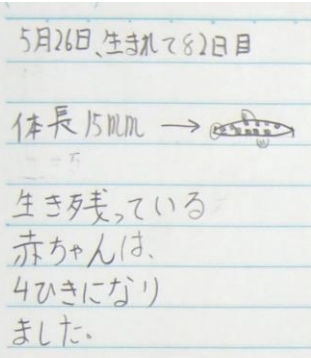 5月26日、生まれて82日目
体長15mm →
生き残っている
赤ちゃんは、
4ひきになり
ました。